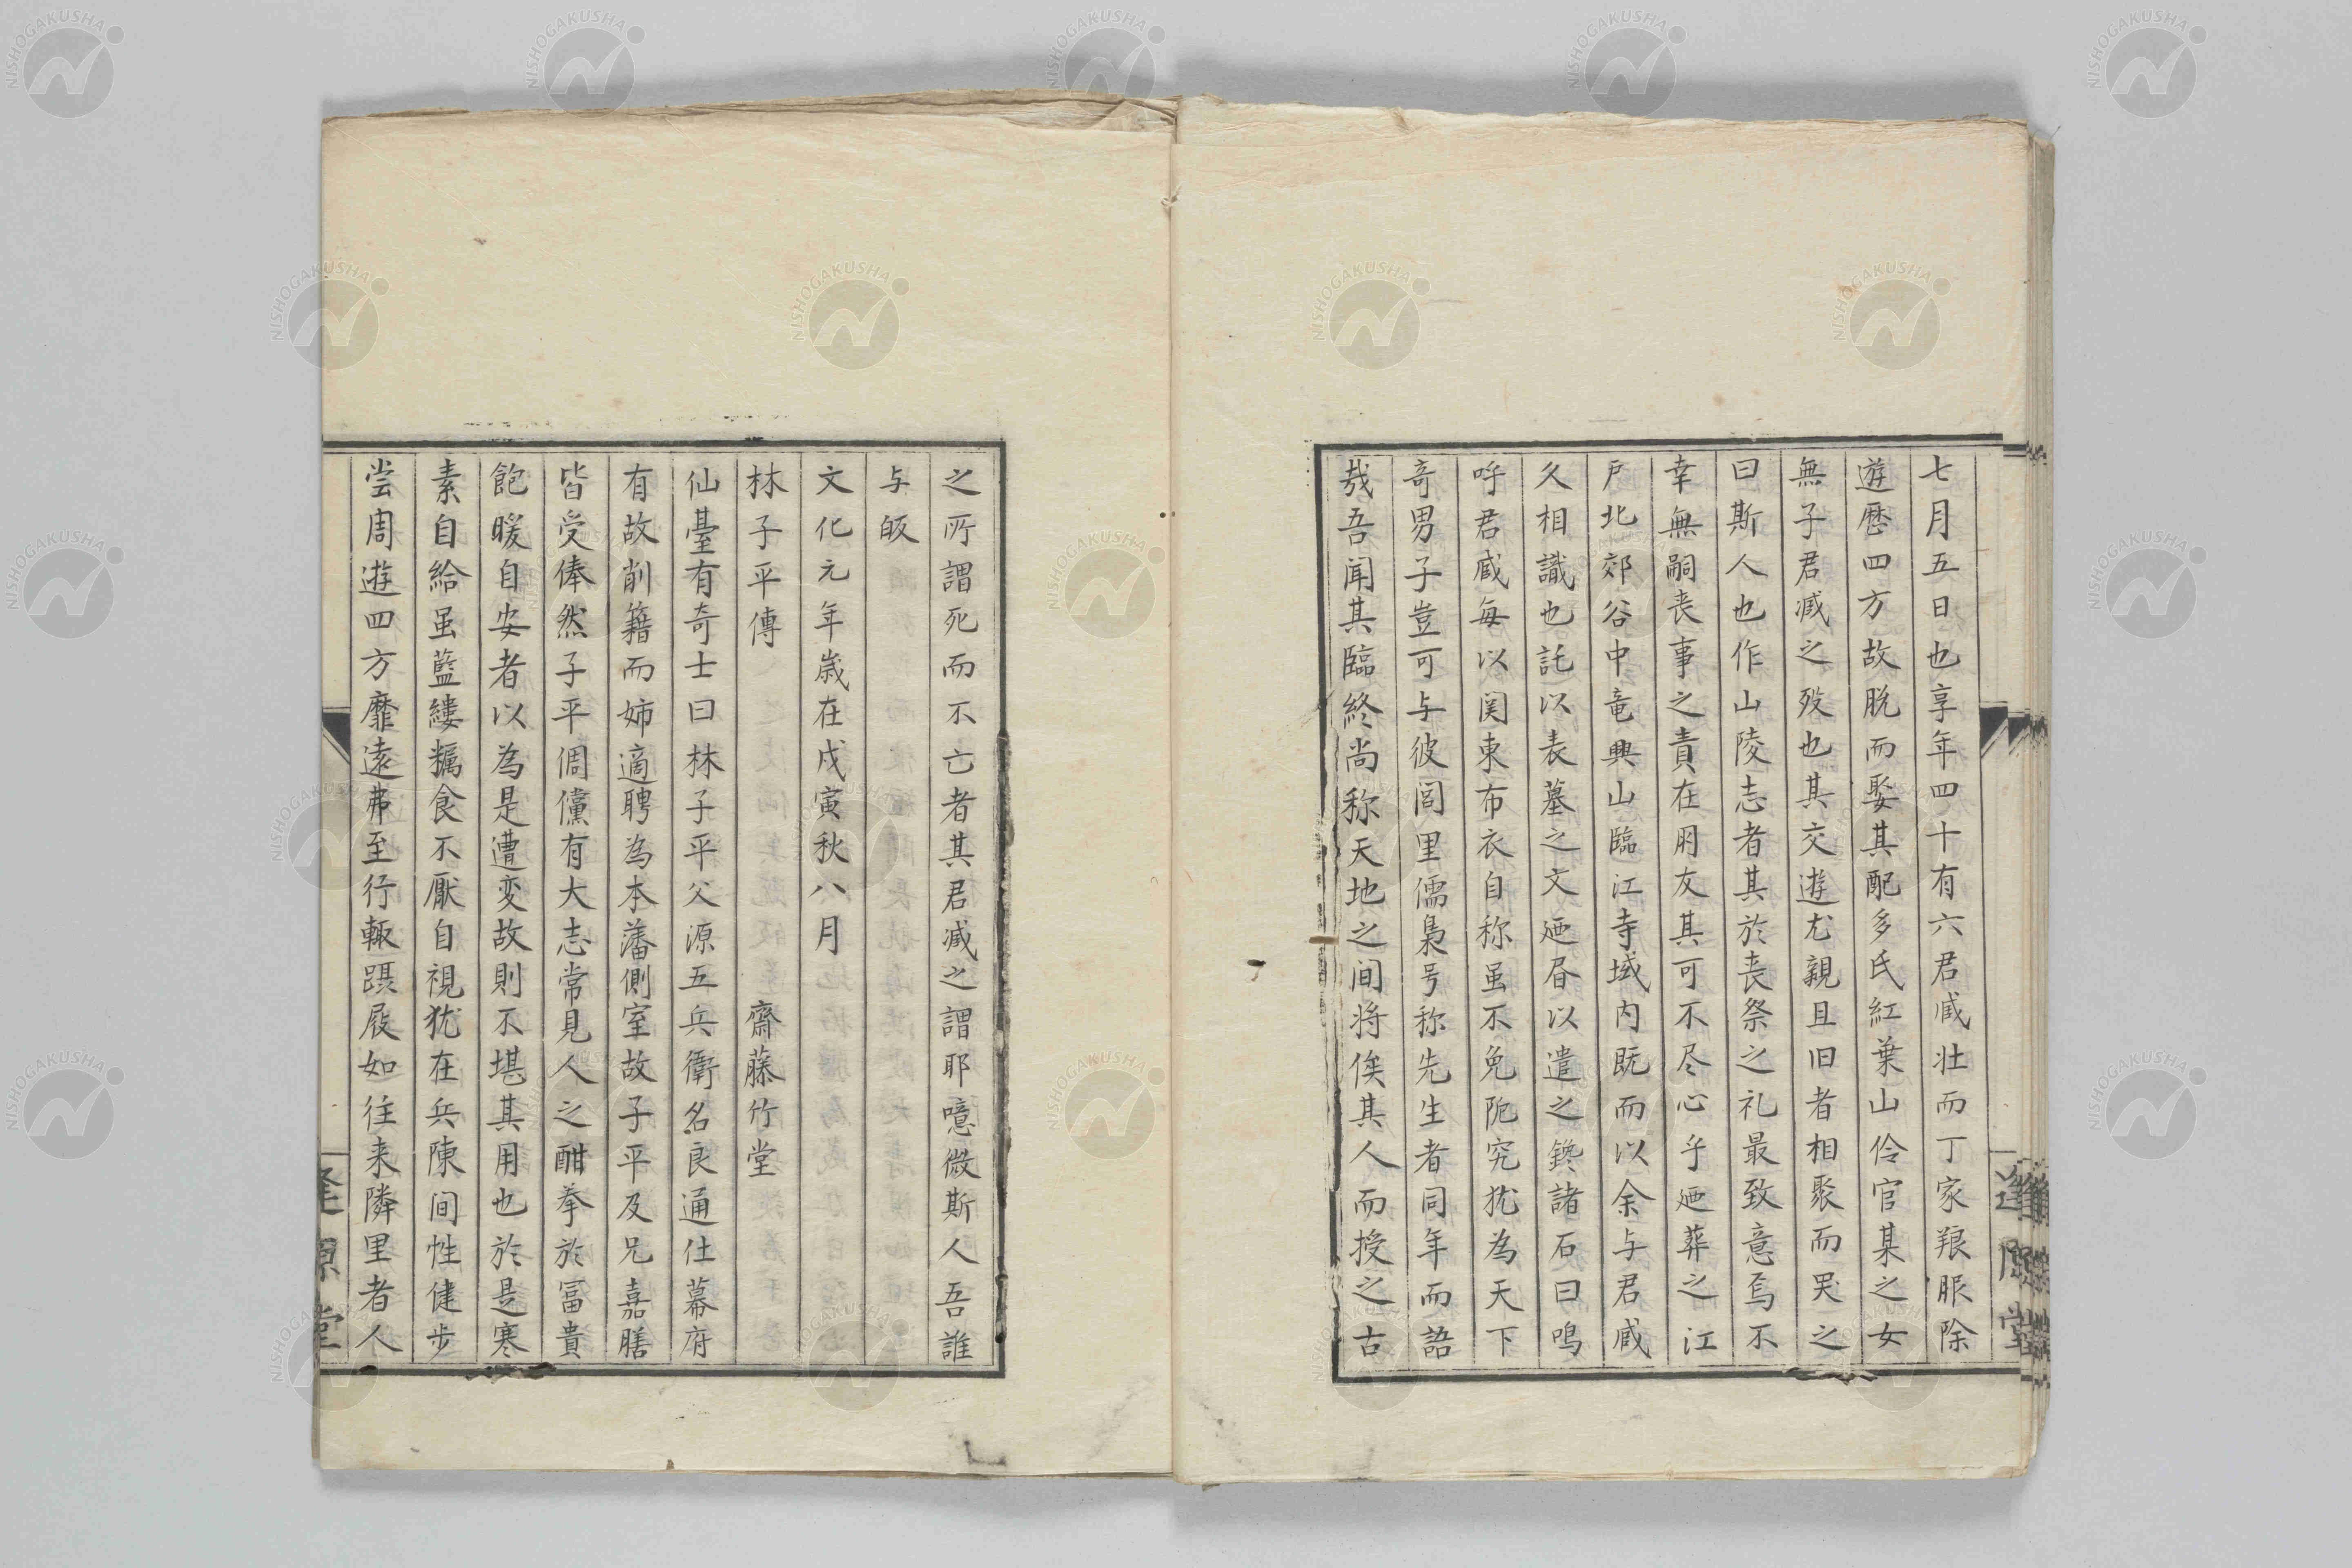 七月五日也享年四十有六君臧壮而丁家艱服除
遊歴四方故脱而娶其配多氏紅葉山伶官某之女
無子君臧之歿也其交遊尤親且旧者相聚而哭之
曰斯人也作山陵志者其於喪祭之礼最致意焉不
幸無嗣喪事之責在朋友其可不尽心乎廼葬之江
戸北郊谷中竜興山臨江寺域内既而以余与君臧
久相識也託以表墓之文廼昼以遣之鑱諸石曰鳴
呼君臧毎以関東布衣自称虽不免阨究犹為天下
奇男子豈可与彼閭里儒梟号称先生者同年而語
哉吾闻其臨終尚称天地之间将俟其人而授之古
之所謂死而不亡者其君臧之謂耶噫微斯人吾誰
与皈
文化元年歳在戊寅秋八月
林子平傳 齋藤竹堂
仙臺有奇士曰林子平父源五兵衛名良通仕幕府
有故削籍而姉適聘為本藩側室故子平及兄嘉膳
皆受俸然子平倜儻有大志常見人之酣拳於富貴
飽暖自安者以為是遭変故則不堪其用也於是寒
素自給虽藍縷糲食不厭自視犹在兵陳间性健步
尝周遊四方靡遠弗至行輙躡屐如往来隣里者人
逢原堂
NISHOGAKUSHA